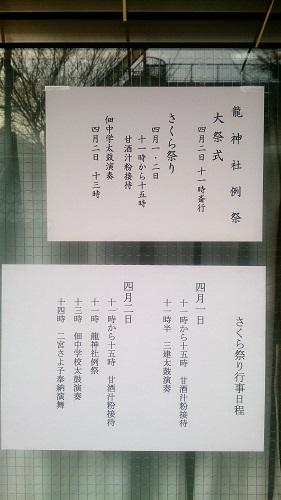 龍神社例祭
大祭式
四月二日 十一時斎行
さくら祭り
四月一・二日
十一時から十五時
甘酒汁粉接待
佃中学太鼓演奏
四月二日 十三時
さくら祭り行事日程
四月一日
十一時から十五時 甘酒汁粉接待
十一時半 三建太鼓演奏
四月二日
十一時から十五時 甘酒汁粉接待
十一時 龍神社例祭
十三時 佃中学校太鼓演奏
十四時 二宮さよ子奉納演舞